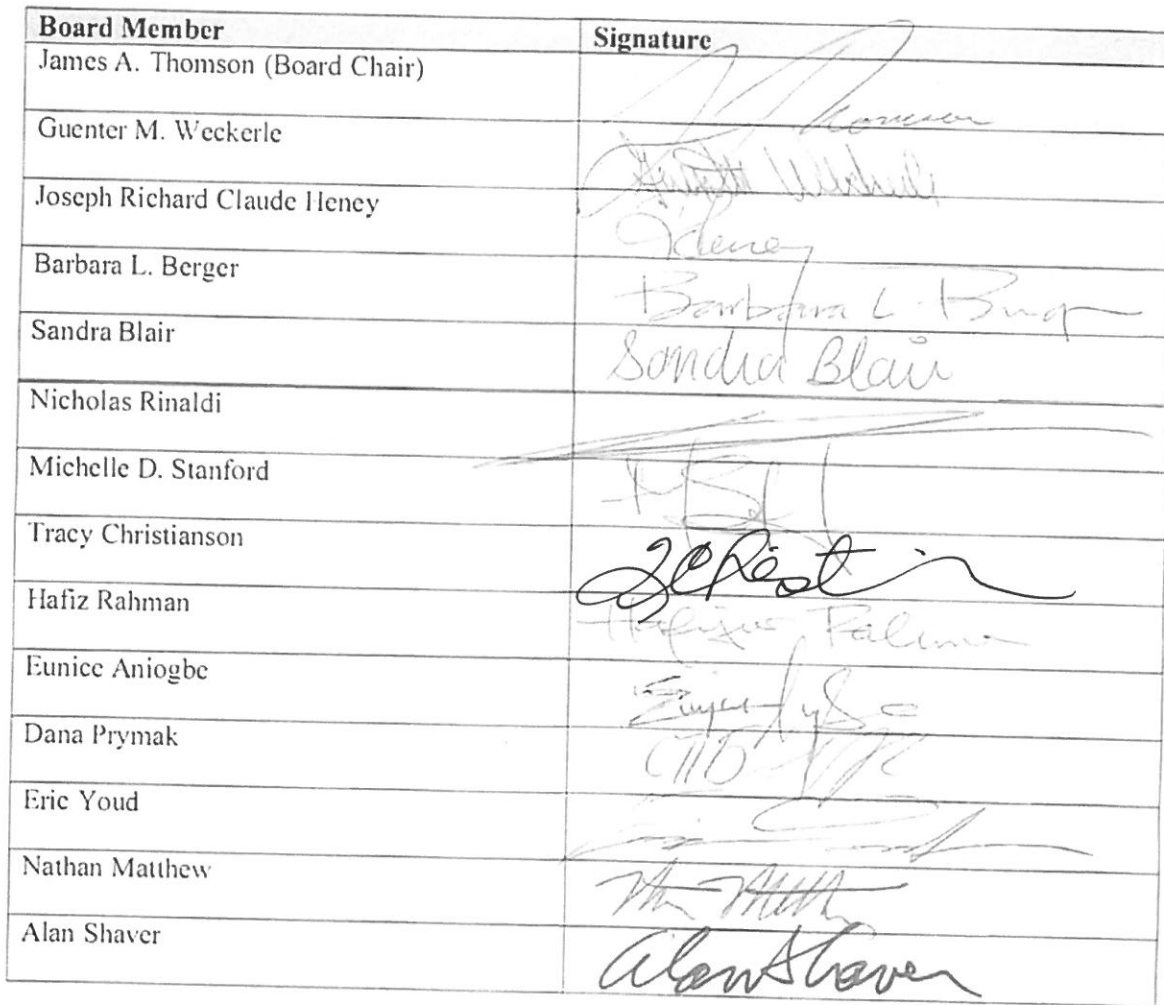 Board Member Signature
James A. Thomson (Board Chair) Thomson
Guenter M. Weckerle
Joseph Richard Claude Heney Heney
Barbara L. Berger Barbara L. Berger
Sandra Blair Sandra Blair
Nicholas Rinaldi
Michelle D. Stanford
Tracy Christianson
Hafiz Rahman
Eunice Aniogbe
Dana Prymak
Eric Youd
Nathan Matthew
Alan Shaver Alan Shaver